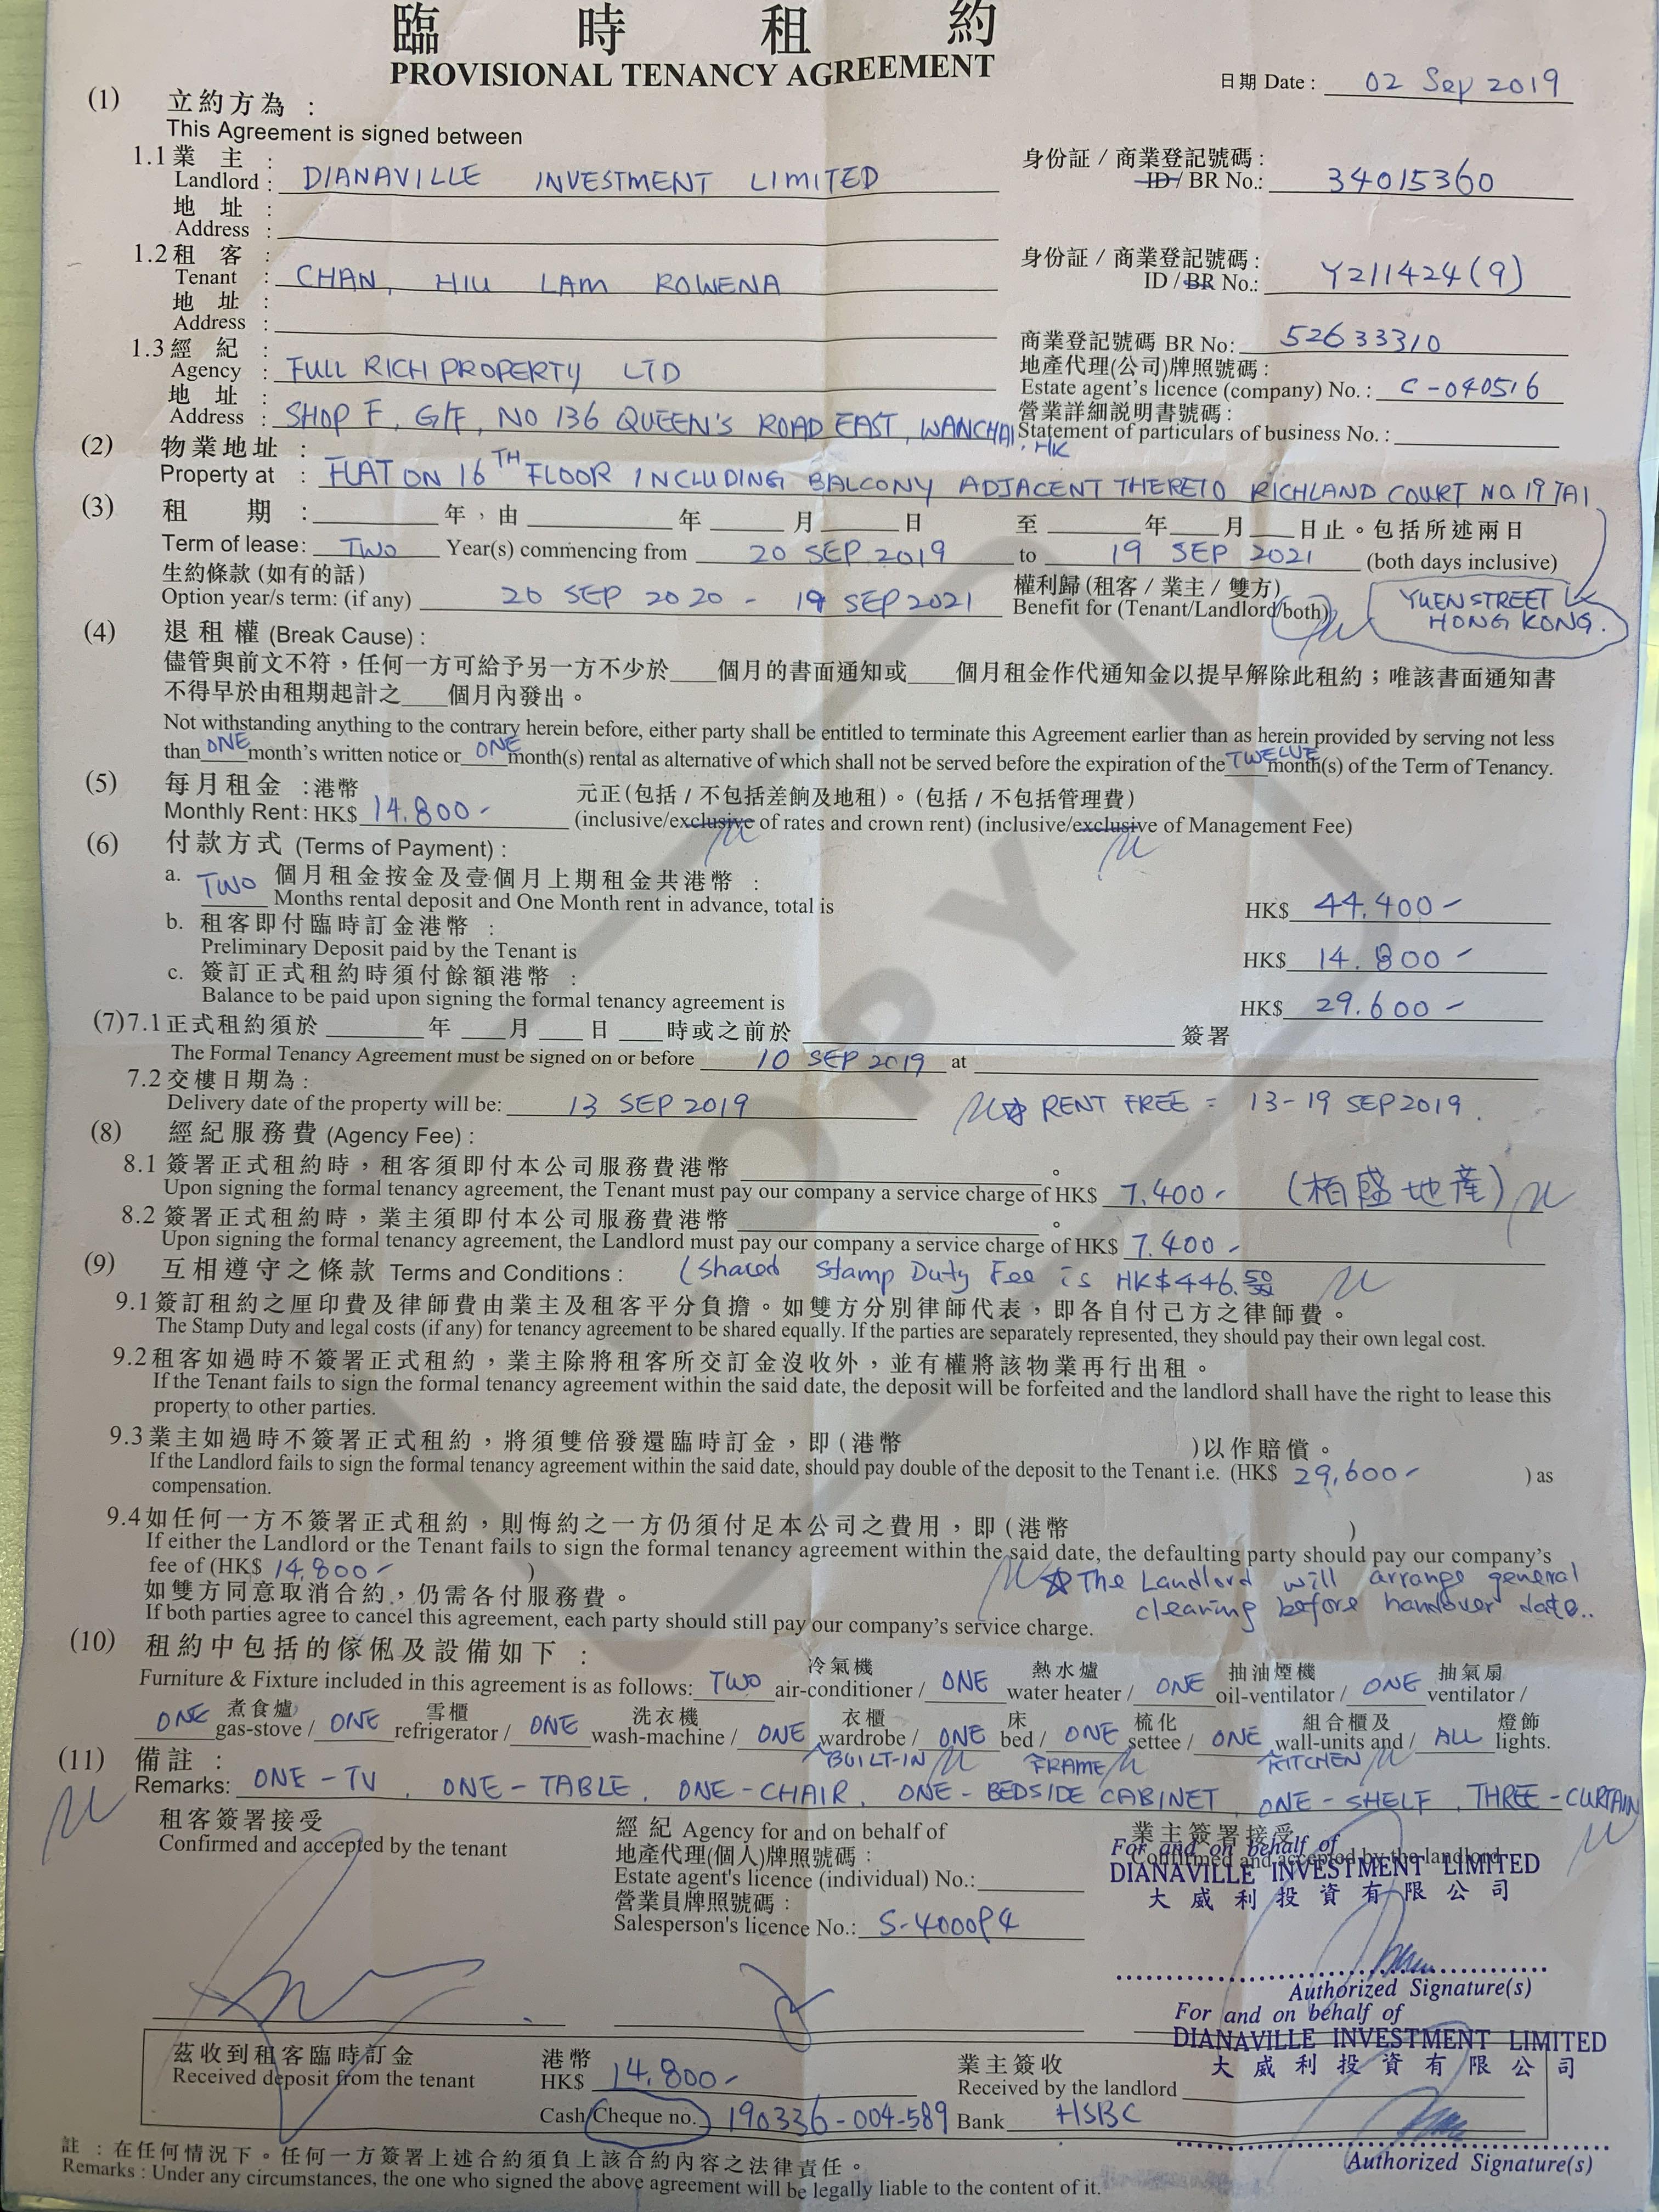 臨 時 租 約
PROVISIONAL TENANCY AGREEMENT
日期 Date : 02 Sep 2019
(1) 立約方為 :
This Agreement is signed between
1.1 業 主 :
Landlord : DIANAVILLE INVESTMENT LIMITED
身份証 / 商業登記號碼 :
ID / BR No.: 34015360
地 址 :
Address :
1.2 租 客 :
Tenant : CHAN, HIU LAM ROWENA
身份証 / 商業登記號碼 :
ID / BR No.: Y211424(9)
地 址 :
Address :
1.3 經 紀 :
Agency : FULL RICH PROPERTY LTD
商業登記號碼 BR No: 52633310
地產代理(公司)牌照號碼 :
Estate agent's licence (company) No. : C-040516
地 址 :
Address : SHOP F, G/F, NO 136 QUEEN'S ROAD EAST, WANCHAI, HK
營業詳細説明書號碼 :
Statement of particulars of business No. :
(2) 物業地址 :
Property at : FLAT ON 16TH FLOOR INCLUDING BALCONY ADJACENT THERETO RICHLAND COURT NO. 19 TAI
YUEN STREET
HONG KONG.
(3) 租 期 : 年,由 年 月 日 至 年 月 日止。包括所述兩日
Term of lease: TWO Year(s) commencing from 20 SEP 2019 to 19 SEP 2021 (both days inclusive)
生約條款 (如有的話) 權利歸 (租客 / 業主 / 雙方)
Option year/s term: (if any) 20 SEP 2020 - 19 SEP 2021 Benefit for (Tenant/Landlord/both)
(4) 退租權 (Break Cause) :
儘管與前文不符,任何一方可給予另一方不少於 個月的書面通知或 個月租金作代通知金以提早解除此租約;唯該書面通知書
不得早於由租期起計之 個月內發出。
Not withstanding anything to the contrary herein before, either party shall be entitled to terminate this Agreement earlier than as herein provided by serving not less
than ONE month's written notice or ONE month(s) rental as alternative of which shall not be served before the expiration of the TWELVE month(s) of the Term of Tenancy.
(5) 每月租金 : 港幣 元正 (包括 / 不包括差餉及地租)。(包括 / 不包括管理費)
Monthly Rent: HK$ 14,800- (inclusive/exclusive of rates and crown rent) (inclusive/exclusive of Management Fee)
(6) 付款方式 (Terms of Payment) :
a. TWO 個月租金按金及壹個月上期租金共港幣 :
Months rental deposit and One Month rent in advance, total is HK$ 44,400-
b. 租客即付臨時訂金港幣 :
Preliminary Deposit paid by the Tenant is HK$ 14,800-
c. 簽訂正式租約時須付餘額港幣 :
Balance to be paid upon signing the formal tenancy agreement is HK$ 29,600-
(7) 7.1 正式租約須於 年 月 日 時或之前於 簽署
The Formal Tenancy Agreement must be signed on or before 10 SEP 2019 at
7.2 交樓日期為 :
Delivery date of the property will be: 13 SEP 2019 ☆ RENT FREE = 13-19 SEP 2019.
(8) 經紀服務費 (Agency Fee) :
8.1 簽署正式租約時,租客須即付本公司服務費港幣 。
Upon signing the formal tenancy agreement, the Tenant must pay our company a service charge of HK$ 7,400- (栢盛地產)
8.2 簽署正式租約時,業主須即付本公司服務費港幣 。
Upon signing the formal tenancy agreement, the Landlord must pay our company a service charge of HK$ 7,400-
(9) 互相遵守之條款 Terms and Conditions : (Shared Stamp Duty Fee is HK$446.50
9.1 簽訂租約之厘印費及律師費由業主及租客平分負擔。如雙方分別律師代表,即各自付己方之律師費。
The Stamp Duty and legal costs (if any) for tenancy agreement to be shared equally. If the parties are separately represented, they should pay their own legal cost.
9.2 租客如過時不簽署正式租約,業主除將租客所交訂金沒收外,並有權將該物業再行出租。
If the Tenant fails to sign the formal tenancy agreement within the said date, the deposit will be forfeited and the landlord shall have the right to lease this
property to other parties.
9.3 業主如過時不簽署正式租約,將須雙倍發還臨時訂金,即 (港幣 )以作賠償。
If the Landlord fails to sign the formal tenancy agreement within the said date, should pay double of the deposit to the Tenant i.e. (HK$ 29,600- ) as
compensation.
9.4 如任何一方不簽署正式租約,則悔約之一方仍須付足本公司之費用,即 (港幣 )
If either the Landlord or the Tenant fails to sign the formal tenancy agreement within the said date, the defaulting party should pay our company's
fee of (HK$ 14,800- )
☆ The Landlord will arrange general
clearing before handover date..
如雙方同意取消合約,仍需各付服務費。
If both parties agree to cancel this agreement, each party should still pay our company's service charge.
(10) 租約中包括的傢俬及設備如下 :
冷氣機 熱水爐 抽油煙機 抽氣扇
Furniture & Fixture included in this agreement is as follows: TWO air-conditioner / ONE water heater / ONE oil-ventilator / ONE ventilator /
煮食爐 雪櫃 洗衣機 衣櫃 床 梳化 組合櫃及 燈飾
ONE gas-stove / ONE refrigerator / ONE wash-machine / ONE wardrobe / ONE bed / ONE settee / ONE wall-units and / ALL lights.
BUILT-IN FRAME KITCHEN
(11) 備註 :
Remarks: ONE-TV, ONE-TABLE, ONE-CHAIR, ONE-BEDSIDE CABINET, ONE-SHELF, THREE-CURTAIN
租客簽署接受
Confirmed and accepted by the tenant
經 紀 Agency for and on behalf of
地產代理(個人)牌照號碼 :
Estate agent's licence (individual) No.:
營業員牌照號碼 :
Salesperson's licence No.: S-400094
業主簽署接受
Confirmed and accepted by the landlord
For and on behalf of
DIANAVILLE INVESTMENT LIMITED
大威利投資有限公司
Authorized Signature(s)
For and on behalf of
DIANAVILLE INVESTMENT LIMITED
大威利投資有限公司
茲收到租客臨時訂金 港幣 業主簽收
Received deposit from the tenant HK$ 14,800- Received by the landlord
Cash/Cheque no. 190336-004-589 Bank HSBC
Authorized Signature(s)
註 : 在任何情況下。任何一方簽署上述合約須負上該合約內容之法律責任。
Remarks : Under any circumstances, the one who signed the above agreement will be legally liable to the content of it.
COPY